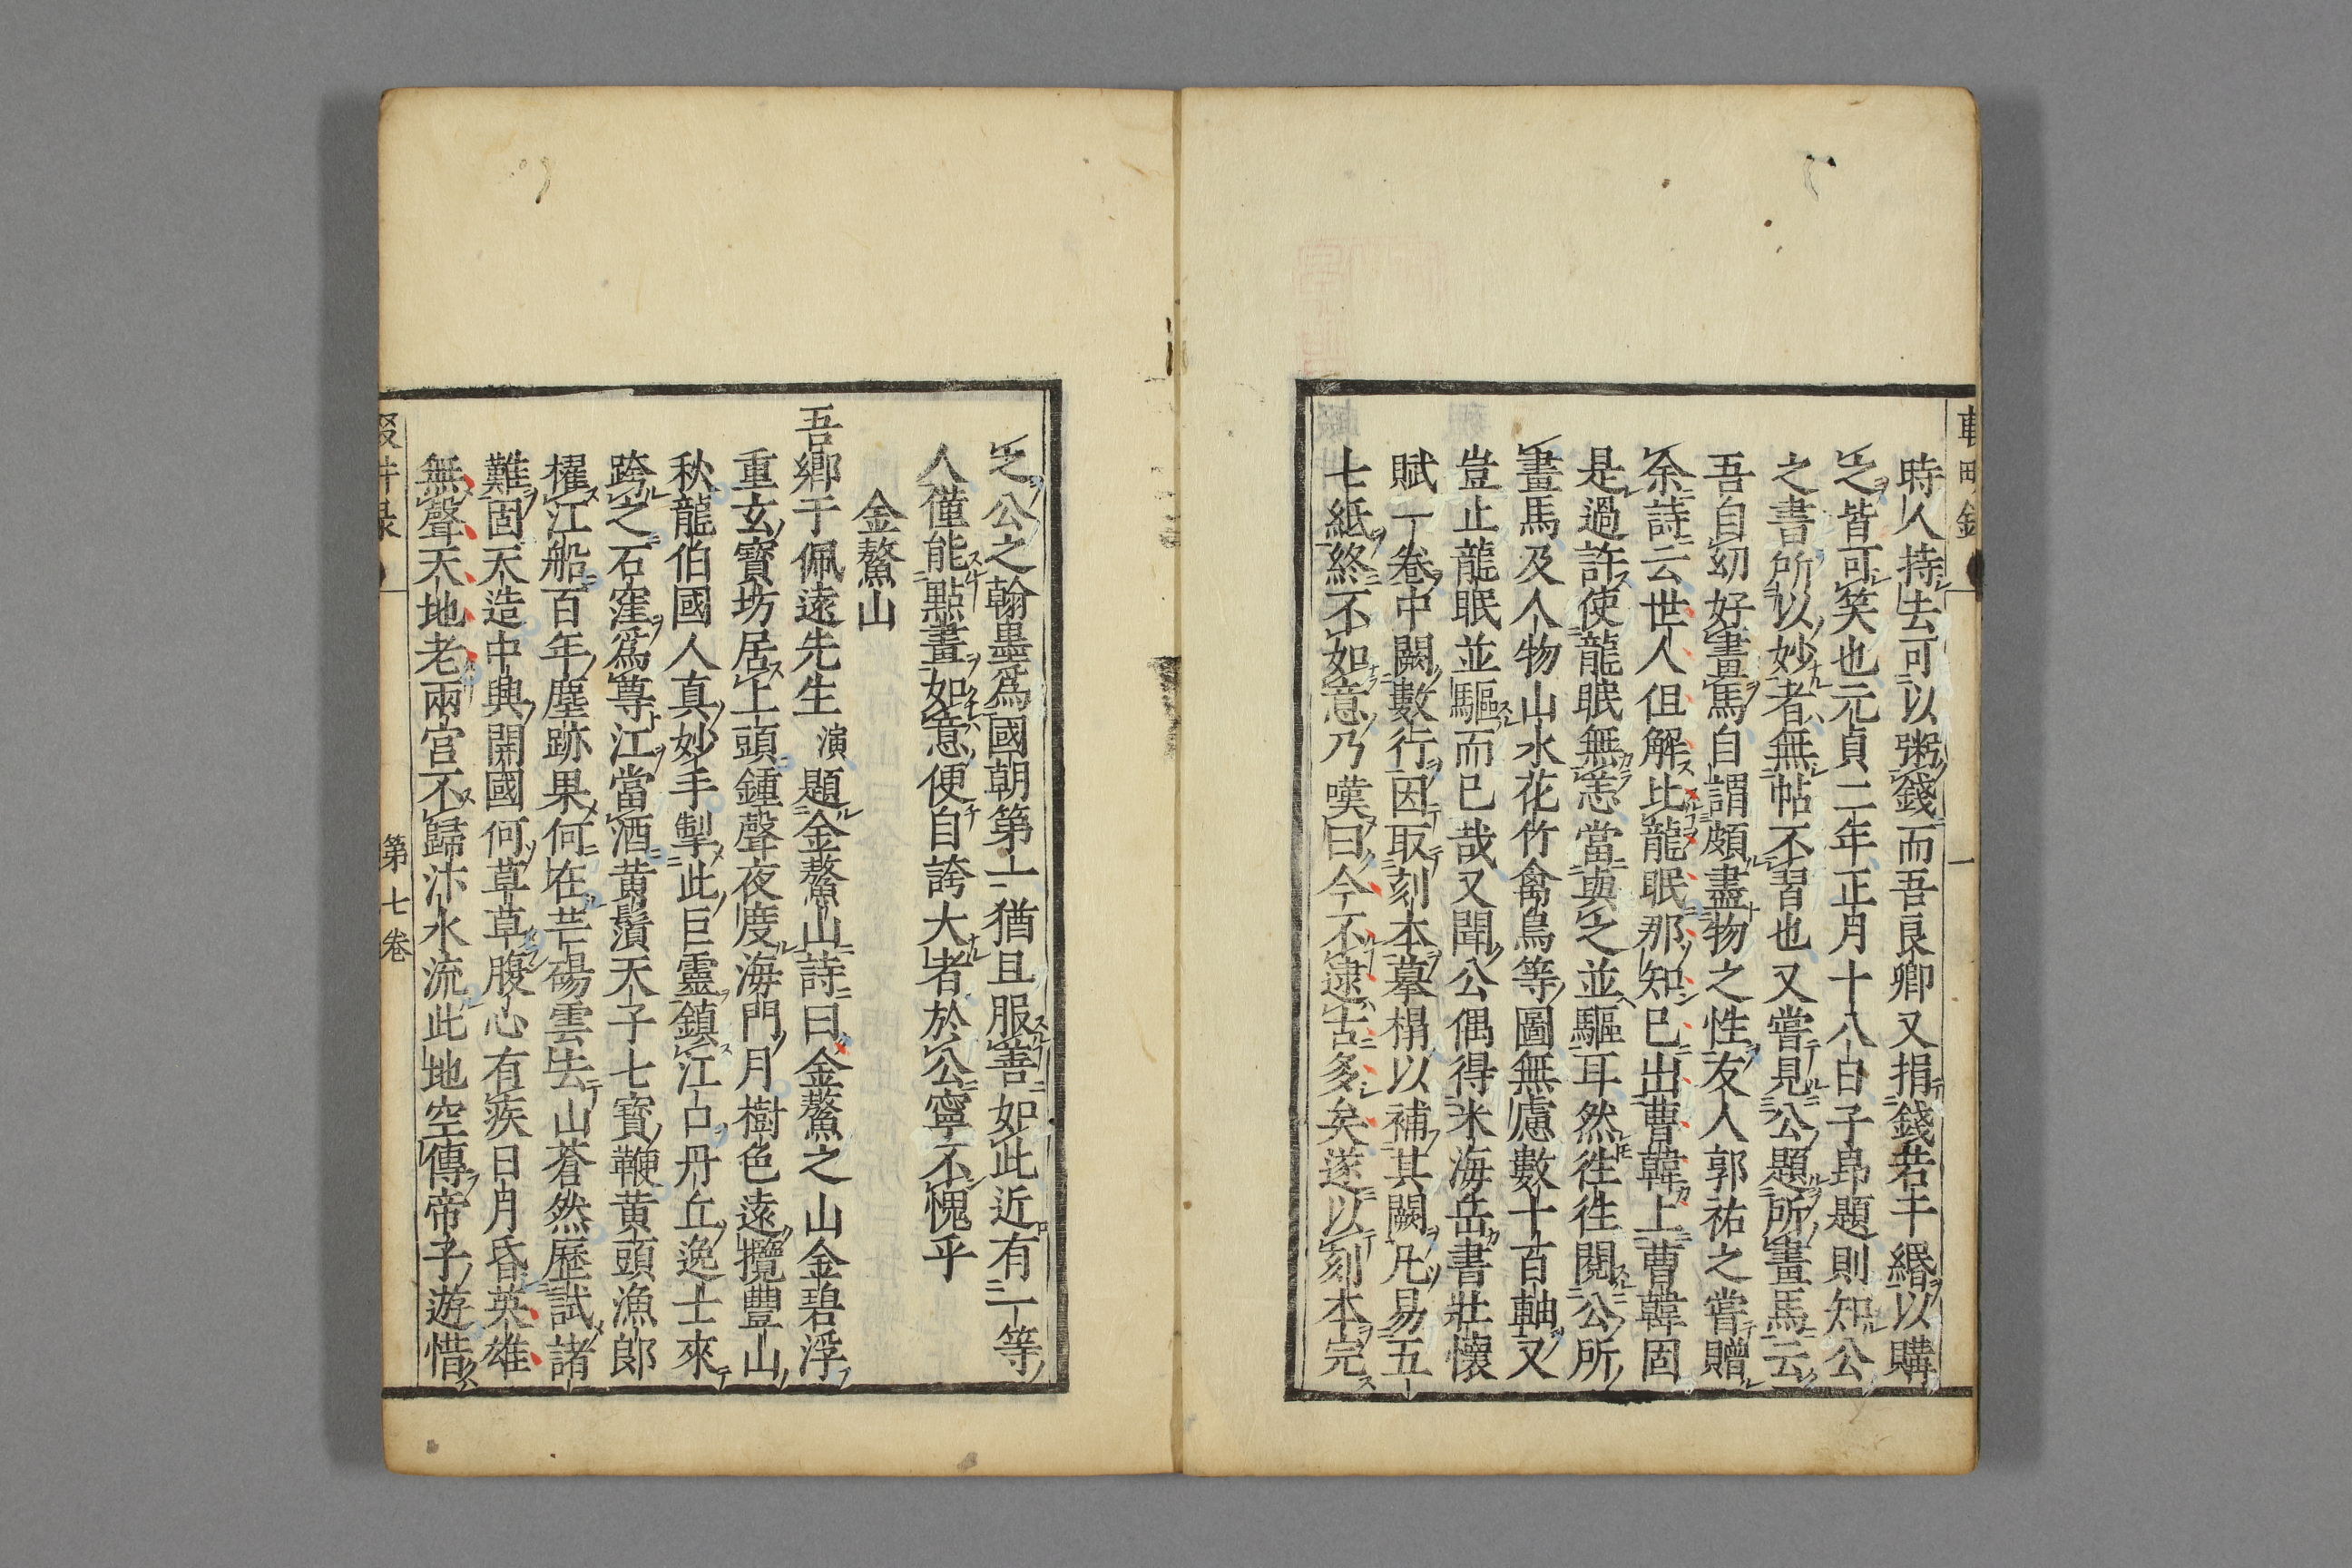 時人持去可以粥錢而吾良卿又捐錢若干緡以購
之皆可笑也元貞二年正月十八日子昂題則知公
之書所以妙者無帖不習也又嘗見公題所畫馬云
吾自幼好畫馬自謂頗盡物之性友人郭祐之嘗贈
余詩云世人但解比龍眠那知已出曹韓上曹韓固
是過許使龍眠無恙當與之並驅耳然往往閱公所
畫馬及人物山水花竹禽鳥等圖無慮數十百軸又
豈止龍眠並驅而已哉又聞公偶得米海岳書壯懷
賦一卷中闕數行因取刻本摹榻以補其闕凡易五
七紙終不如意乃嘆曰今不逮古多矣遂以刻本完
之公之翰墨爲國朝第一猶且服善如此近有一等
人僅能點畫如意便自誇大者於公寧不愧乎
金鰲山
吾鄉于佩遠先生演題金鰲山詩曰金鰲之山金碧浮
重玄寶坊居上頭鍾聲夜度海門月樹色遠攬豐山
秋龍伯國人真妙手掣此巨靈鎮江口丹丘逸士來
跨之石窪爲尊江當酒黃鬚天子七寶鞭黃頭漁郎
櫂江船百年塵跡果何在芒碭雲去山蒼然歷試諸
難固天造中興開國何草草腹心有疾日月昏英雄
無聲天地老兩宮不歸汴水流此地空傳帝子遊惜
第七卷